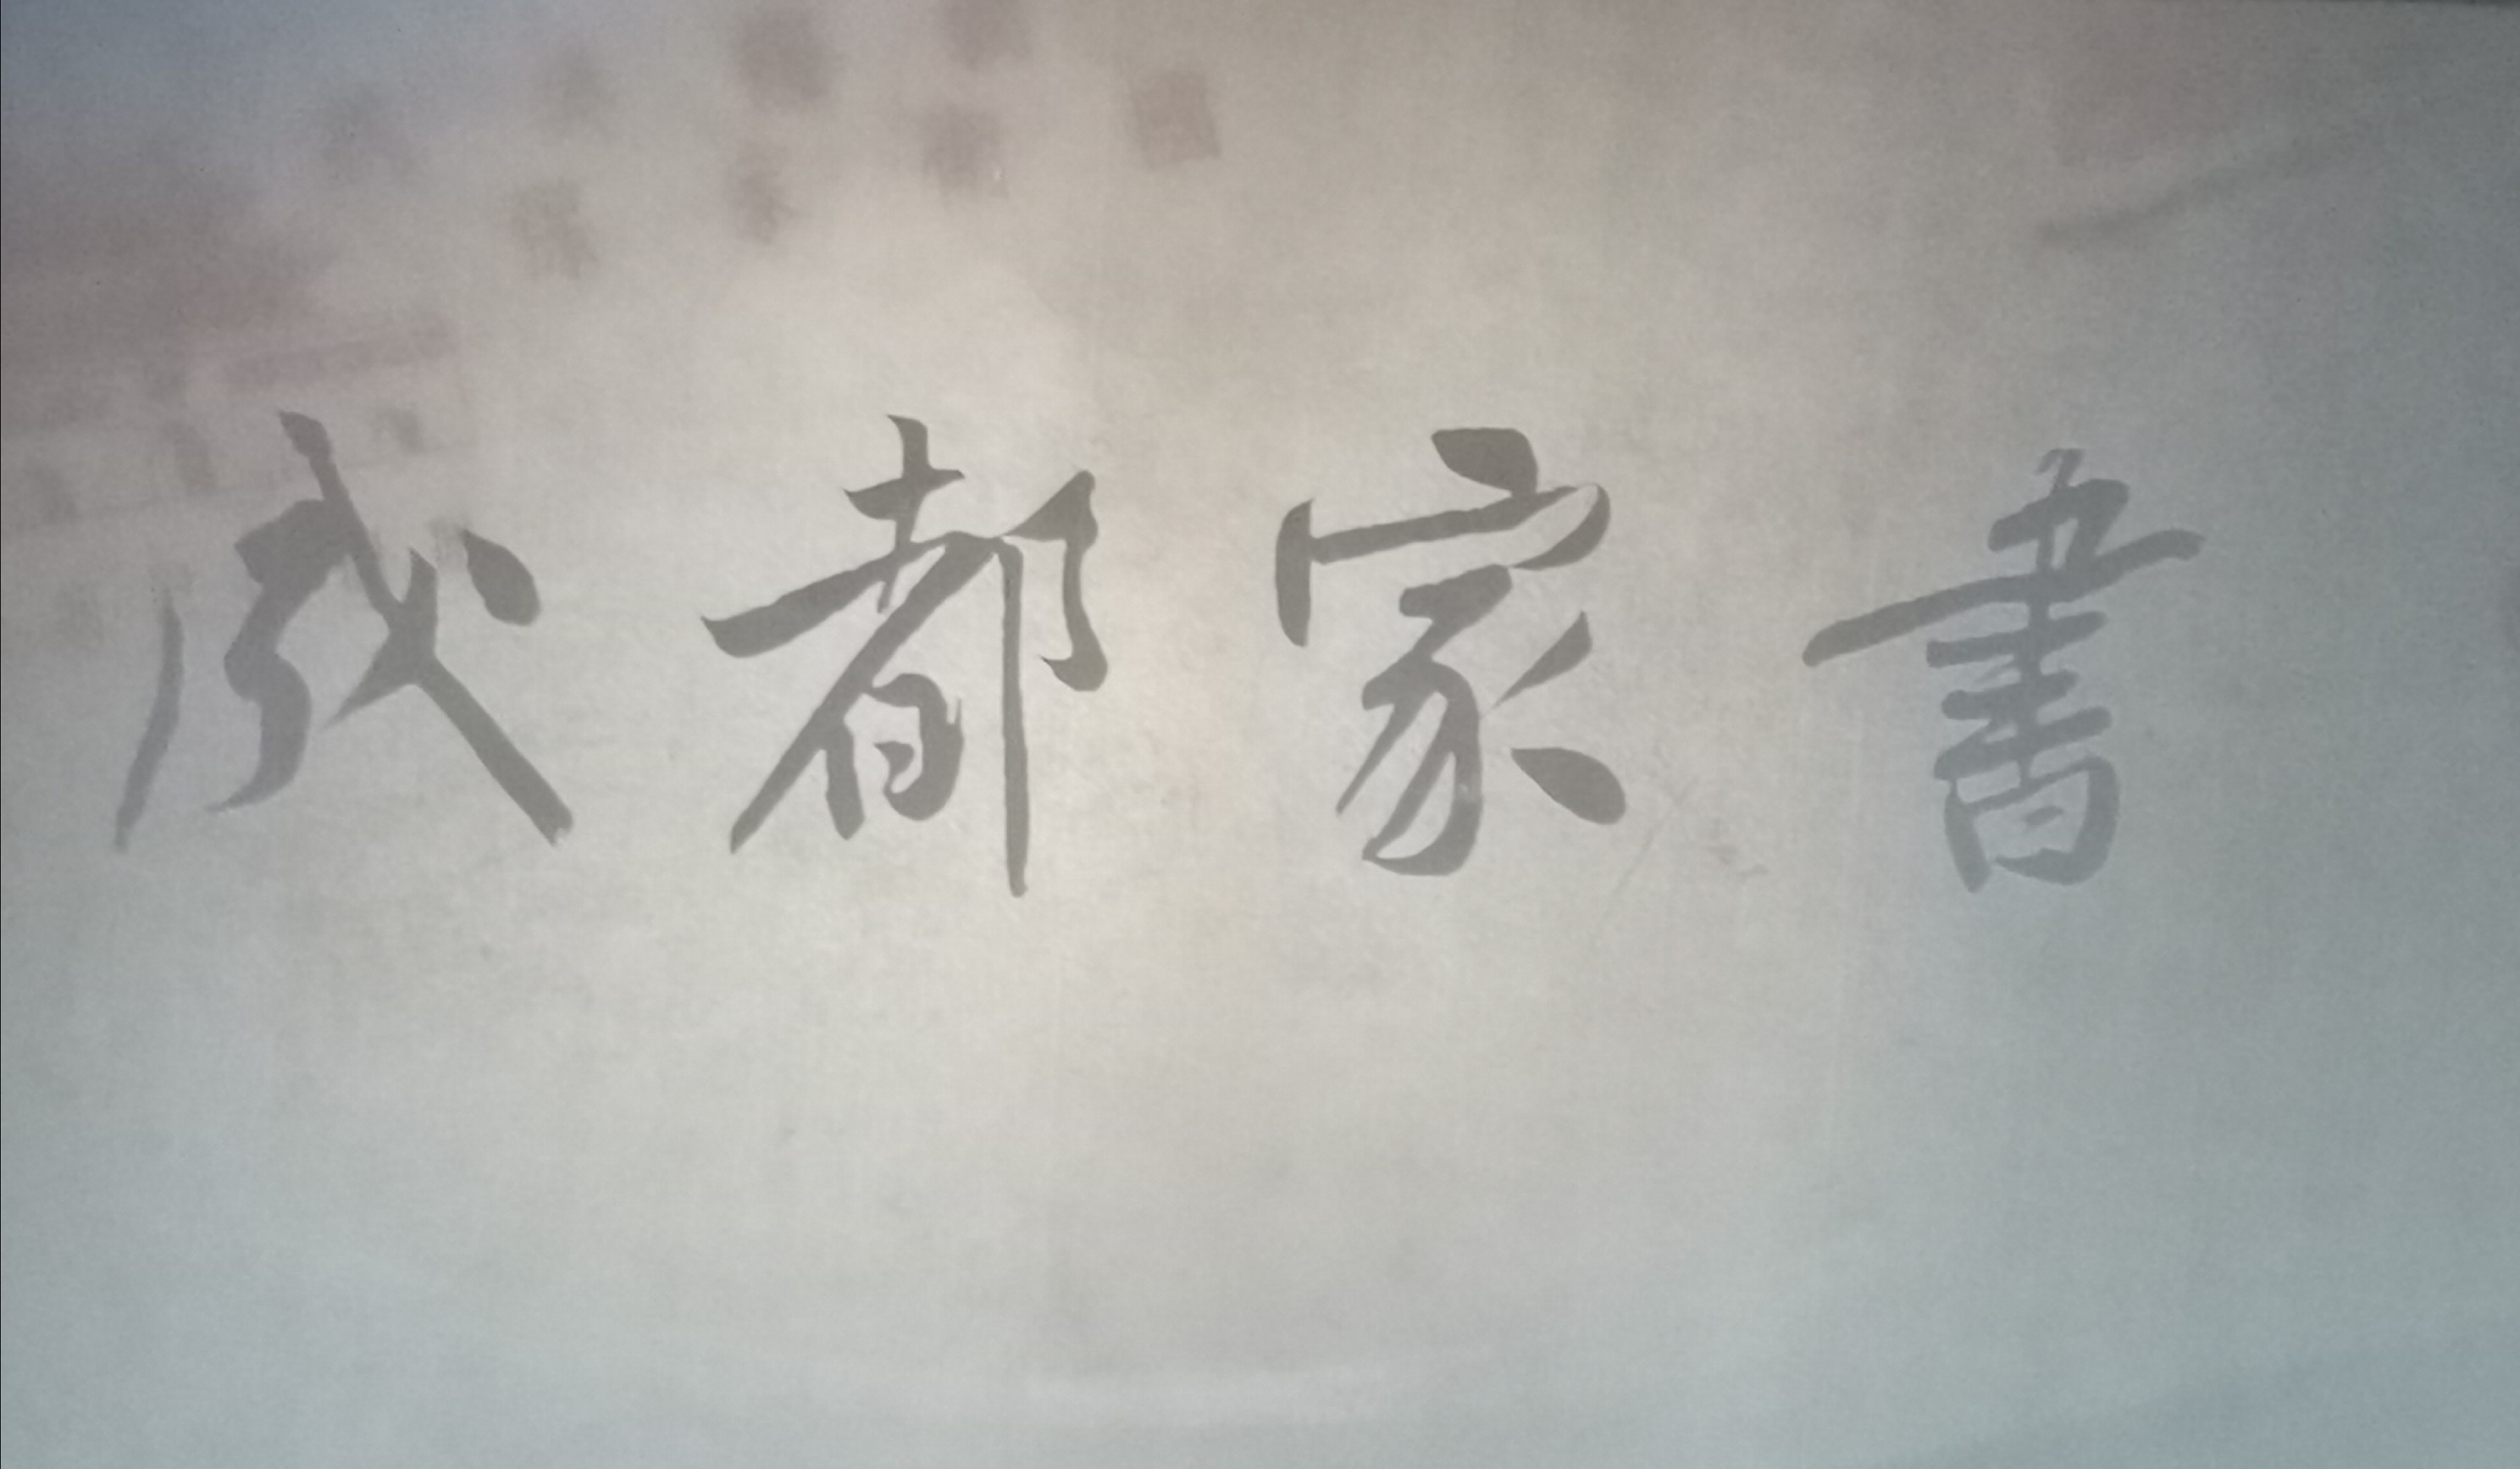 成都家書